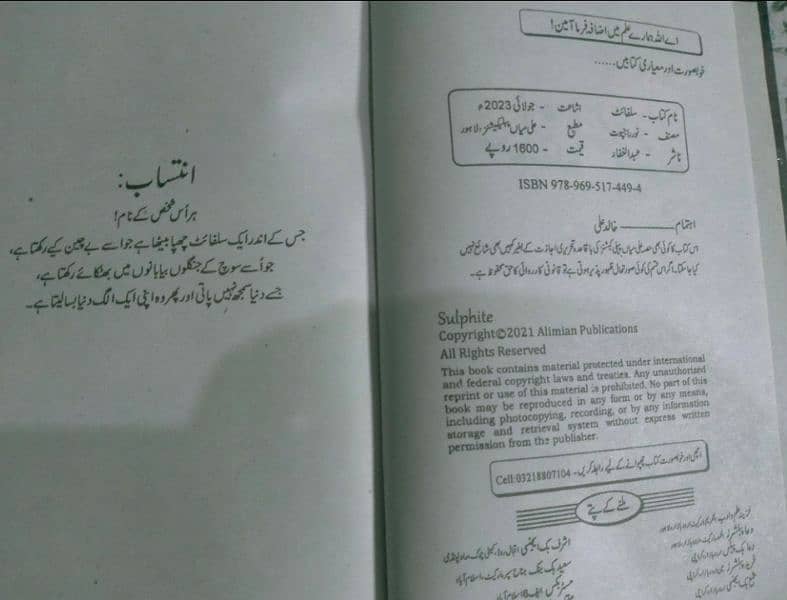 انتساب:
ہر اُس شخص کے نام!
جس کے اندر ایک سلفائٹ چھپا بیٹھا ہے جو اسے بے چین کیے رکھتا ہے،
جو اُسے سوچ کے جنگلوں بیابانوں میں بھٹکائے رکھتا ہے،
جسے دنیا سمجھ نہیں پاتی اور پھر وہ اپنی ایک الگ دنیا بسا لیتا ہے۔
اے اللہ ہمارے علم میں اضافہ فرما آمین!
خوبصورت اور معیاری کتابیں......
نام کتاب - سلفائٹ اشاعت - جولائی 2023ء
مصنف - نور راجپوت مطبع - علی میاں پبلیکیشنز، لاہور
ناشر - عبدالغفار قیمت - 1600 روپے
ISBN 978-969-517-449-4
اہتمام ــــــــ خالد علی
اس کتاب کا کوئی بھی حصہ علی میاں پبلی کیشنز کی باقاعدہ تحریری اجازت کے بغیر کہیں بھی شائع نہیں
کیا جا سکتا۔ اگر اس قسم کی کوئی صورتحال ظہور پذیر ہوتی ہے تو قانونی کارروائی کا حق محفوظ ہے۔
Sulphite
Copyright©2021 Alimian Publications
All Rights Reserved
This book contains material protected under international
and federal copyright laws and treaties. Any unauthorized
reprint or use of this material is prohibited. No part of this
book may be reproduced in any form or by any means,
including photocopying, recording, or by any information
storage and retrieval system without express written
permission from the publisher.
اچھی اور خوبصورت کتاب چھپوانے کے لیے رابطہ کریں۔ Cell:03218807104
ملنے کے پتے
اشرف بک ایجنسی اقبال روڈ، کمیٹی چوک، راولپنڈی
سعید بک بینک جناح سپر مارکیٹ، اسلام آباد
مسٹر بکس اسلام آباد